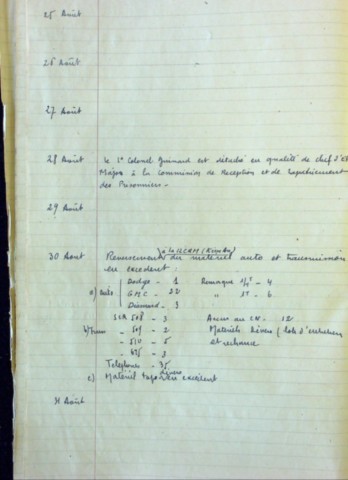 25 Août
26 Août
27 Août
28 Août Le Lt Colonel Guinard est détaché en qualité de chef d'Et
Major à la Commission de Réception et de
des Prisonniers -
29 Août
à la
30 Août Reversement du matériel auto et transmission
en excédent :
Dodge - 1 Remorque 1T - 4
a) Auto G.M.C - 22 " 3T - 6
Diamond - 3
SCR 508 - 3 - 12
b) Trans - 509 - 2 Matériels divers ( lots d'entretien
- 510 - 5 et rechange
- 3
Téléphones - 35
divers
c) Matériel en excédent
31 Août